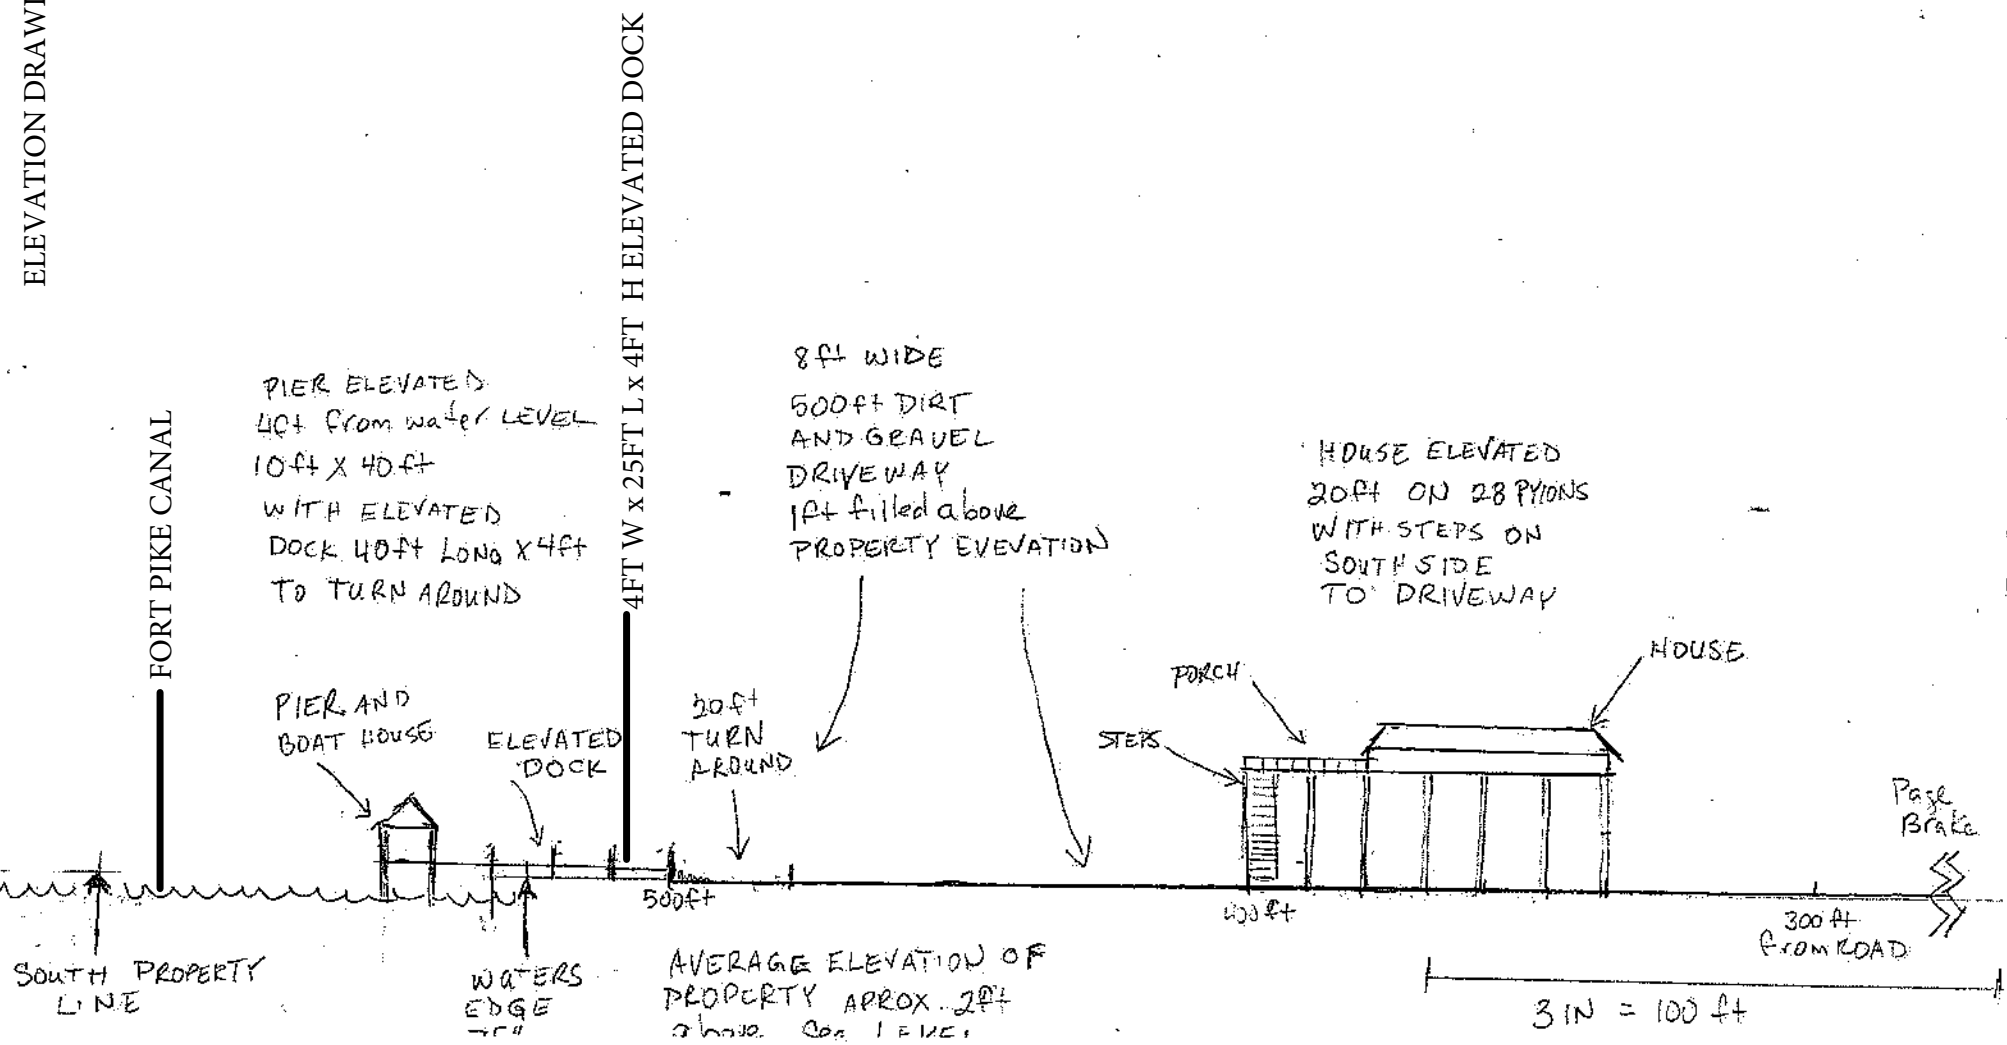 ELEVATION DRAWI
FORT PIKE CANAL
4FT W x 25FT L x 4FT H ELEVATED DOCK
PIER ELEVATED
4ft from water LEVEL
10ft X 40ft
WITH ELEVATED
DOCK 40ft LONG X 4ft
TO TURN AROUND
8ft WIDE
500ft DIRT
AND GRAVEL
DRIVEWAY
1ft filled above
PROPERTY EVEVATION
HOUSE ELEVATED
20ft ON 28 PYIONS
WITH STEPS ON
SOUTH SIDE
TO DRIVEWAY
PIER AND
BOAT HOUSE
ELEVATED
DOCK
20ft
TURN
AROUND
PORCH
STEPS
HOUSE
Page
Brake
500ft
400ft
300ft
from ROAD
SOUTH PROPERTY
LINE
WATERS
EDGE
AVERAGE ELEVATION OF
PROPERTY APROX. 2ft
above Sea LEVEL
3 IN = 100 ft